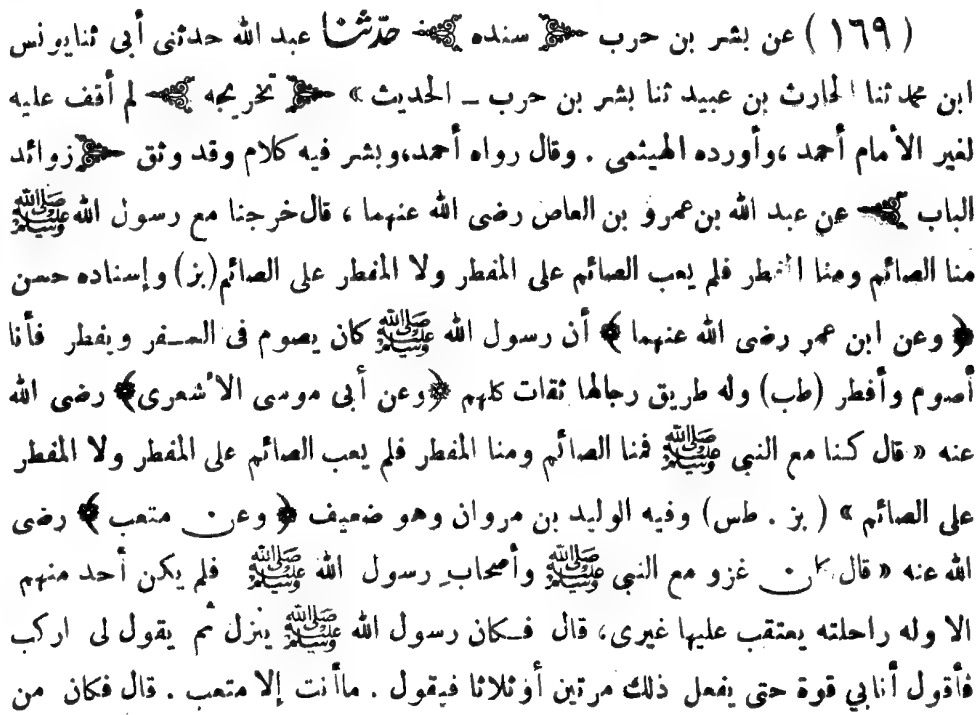 ( ١٦٩ ) عن بشر بن حرب ﴿ سنده ﴾ حدّثنا عبد الله حدثنى أبى ثنا يونس
ابن محمد ثنا الحارث بن عبيد ثنا بشر بن حرب ــ الحديث » ﴿ تخريجه ﴾ لم أقف عليه
لغير الأمام أحمد ،وأورده الهيثمى . وقال رواه أحمد،وبشر فيه كلام وقد وثق ﴿ زوائد
الباب ﴾ عن عبد الله بن عمرو بن العاص رضى الله عنهما ، قال خرجنا مع رسول الله ﷺ
منا الصائم ومنا المفطر فلم يعب الصائم على المفطر ولا المفطر على الصائم (بز) وإسناده حسن
﴿ وعن ابن عمر رضى الله عنهما ﴾ أن رسول الله ﷺ كان يصوم فى السفر ويفطر فأنا
أصوم وأفطر (طب) وله طريق رجالها ثقات كلهم ﴿وعن أبى موسى الأشعرى﴾ رضى الله
عنه « قال كنا مع النبى ﷺ فمنا الصائم ومنا المفطر فلم يعب الصائم على المفطر ولا المفطر
على الصائم » ( بز . طس) وفيه الوليد بن مروان وهو ضعيف ﴿ وعن متعب ﴾ رضى
الله عنه « قال غزو مع النبى ﷺ وأصحاب رسول الله ﷺ فلم يكن أحد منهم
الا وله راحلته يعتقب عليها غيرى، قال فكان رسول الله ﷺ ينزل ثم يقول لى اركب
فأقول أنا بي قوة حتى يفعل ذلك مرتين أو ثلاثا فيقول . ما أنت إلا متعب . قال فكان من